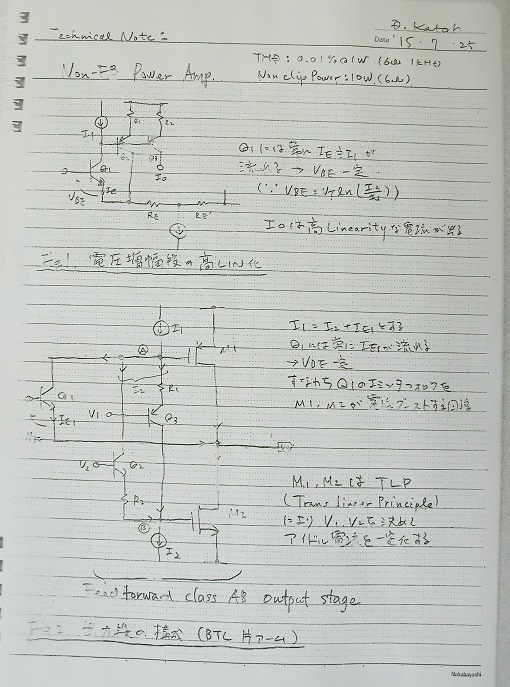 D. Katoh
Technical Note:
Date '15. 7. 25
THD: 0.01% @1W (6ch 1kHz)
Non-FB Power Amp.
Non clip Power: 10W (6ch)
I1
R1
R2
Q1には常に IE≒I1 が
Q1
Q2
Q3
流れる → VBE 一定
IE
I0
VBE
(∵ VBE = VT ln( ))
RE
RE'
I0は高Linearityな電流が出る
Fig1. 電圧増幅段の高LIN化
I1
I1 = I2 + IE1とする
A
M1
Q1には常に IE1が流れる
I2
R1
→ VBE 一定
Q1
V1
Q3
すなわち Q1のエミッタフォロワを
IE1
M1, M2が電流ブーストする回路
V2
Q2
M1, M2は TLP
R2
M2
(Trans linear Principle)
B
により V1, V2を決めて
I2
アイドル電流を一定化する
Feed forward class AB output stage
Fig2 出力段の構成 (BTL 片アーム)
Nakabayashi